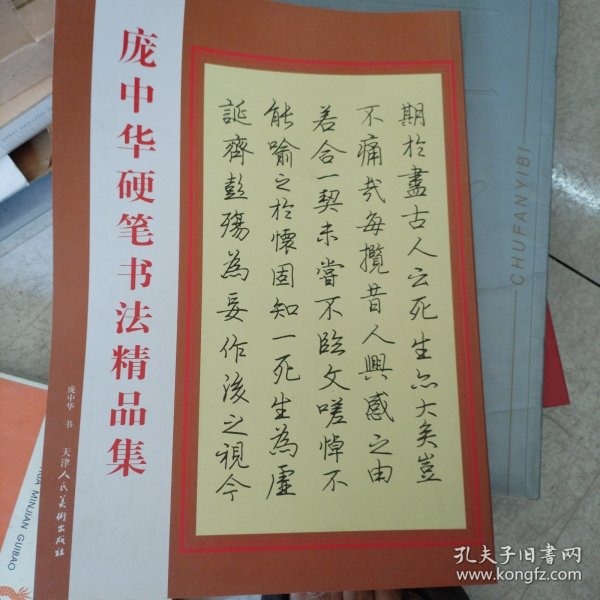 庞中华硬笔书法精品集
庞中华 书
天津人民美術出版社
期於盡古人云死生亦大矣豈
不痛哉每攬昔人興感之由
若合一契未嘗不臨文嗟悼不
能喻之於懷固知一死生為虛
誕齊彭殤為妄作後之視今
CHUFANYIBI
MINJIAN GUIBAO
孔夫子旧书网
www.kongfz.com